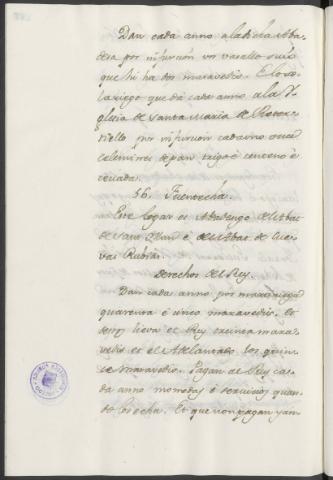 Dan cada anno a la dicha Aba
desa por infurcion un vasallo suio
que hi ha dos maravedis. E los so
lariego que dà cada anno a la Y
glesia de Santa Maria de
por infurcion cada uno once
celemines de pan trigo è centeno è
cevada.
56. Fuenrecha.
Este logar es Abadengo del Abat
de Sant è del Abat de Cue
vas Rubias.
Derechos del Rey.
Dan cada anno por martiniega
quarenta è cinco maravedis. Et
destos lieva el Rey treinta mara
vedis et el Adelantado los quin
ce maravedis. Pagan al Rey ca
da anno monedas è servicios quan
do los echa. Et que non pagan yan